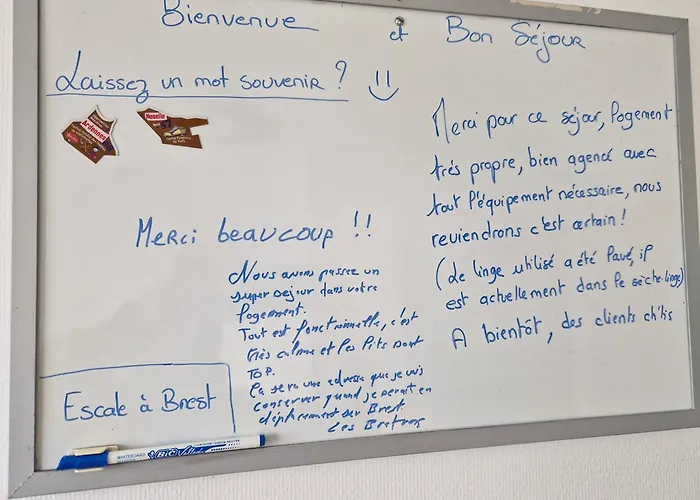 Bienvenue et Bon Séjour
Laissez un mot souvenir ?
Ardennes
Moselle
Merci pour ce séjour, logement
très propre, bien agencé avec
tout l'équipement nécessaire, nous
reviendrons c'est certain !
(Le linge utilisé a été lavé, il
est actuellement dans le sèche-linge)
A bientôt, des clients ch'tis
Merci beaucoup !!
Nous avons passez un
super sejour dans votre
logement.
Tout est fonctionnelle, c'est
très calme et les lits sont
TOP.
ça sera une adresse que je vais
conserver quand je serait en
déplacement sur Brest.
Les
Escale à Brest
WHITEBOARD
BIC Velleda